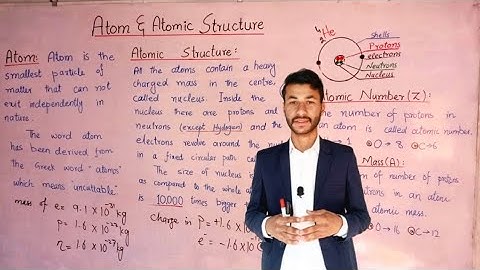 Atom & Atomic Structure
Atom: Atom is the
smallest particle of
matter that can not
exit independently in
nature.
The word atom
has been derived from
the Greek word "atoms"
which means "uncuttable"
mass of e = 9.1 × 10⁻³¹ kg
P = 1.6 × 10⁻²⁷ kg
n = 1.6 × 10⁻²⁷ kg
Atomic Structure:
All the atoms contain a heavy
charged mass in the centre,
called nucleus. Inside the
nucleus there are protons and
neutrons (except Hydogen) and the
electrons revolve around the
in a fixed circular path
The size of nucleus
as compared to the whole
is 10,000 times bigger
charge in P = +1.6 × 10
e⁻ = -1.6 × 10
⁴₂He
shells
Protons
electrons
Neutrons
Nucleus
Atomic Number(Z):
The number of protons in
an atom is called atomic number.
O → 8 C → 6
Mass(A):
of number of protons
neutrons in an atom
atomic mass.
O → 16 C → 12